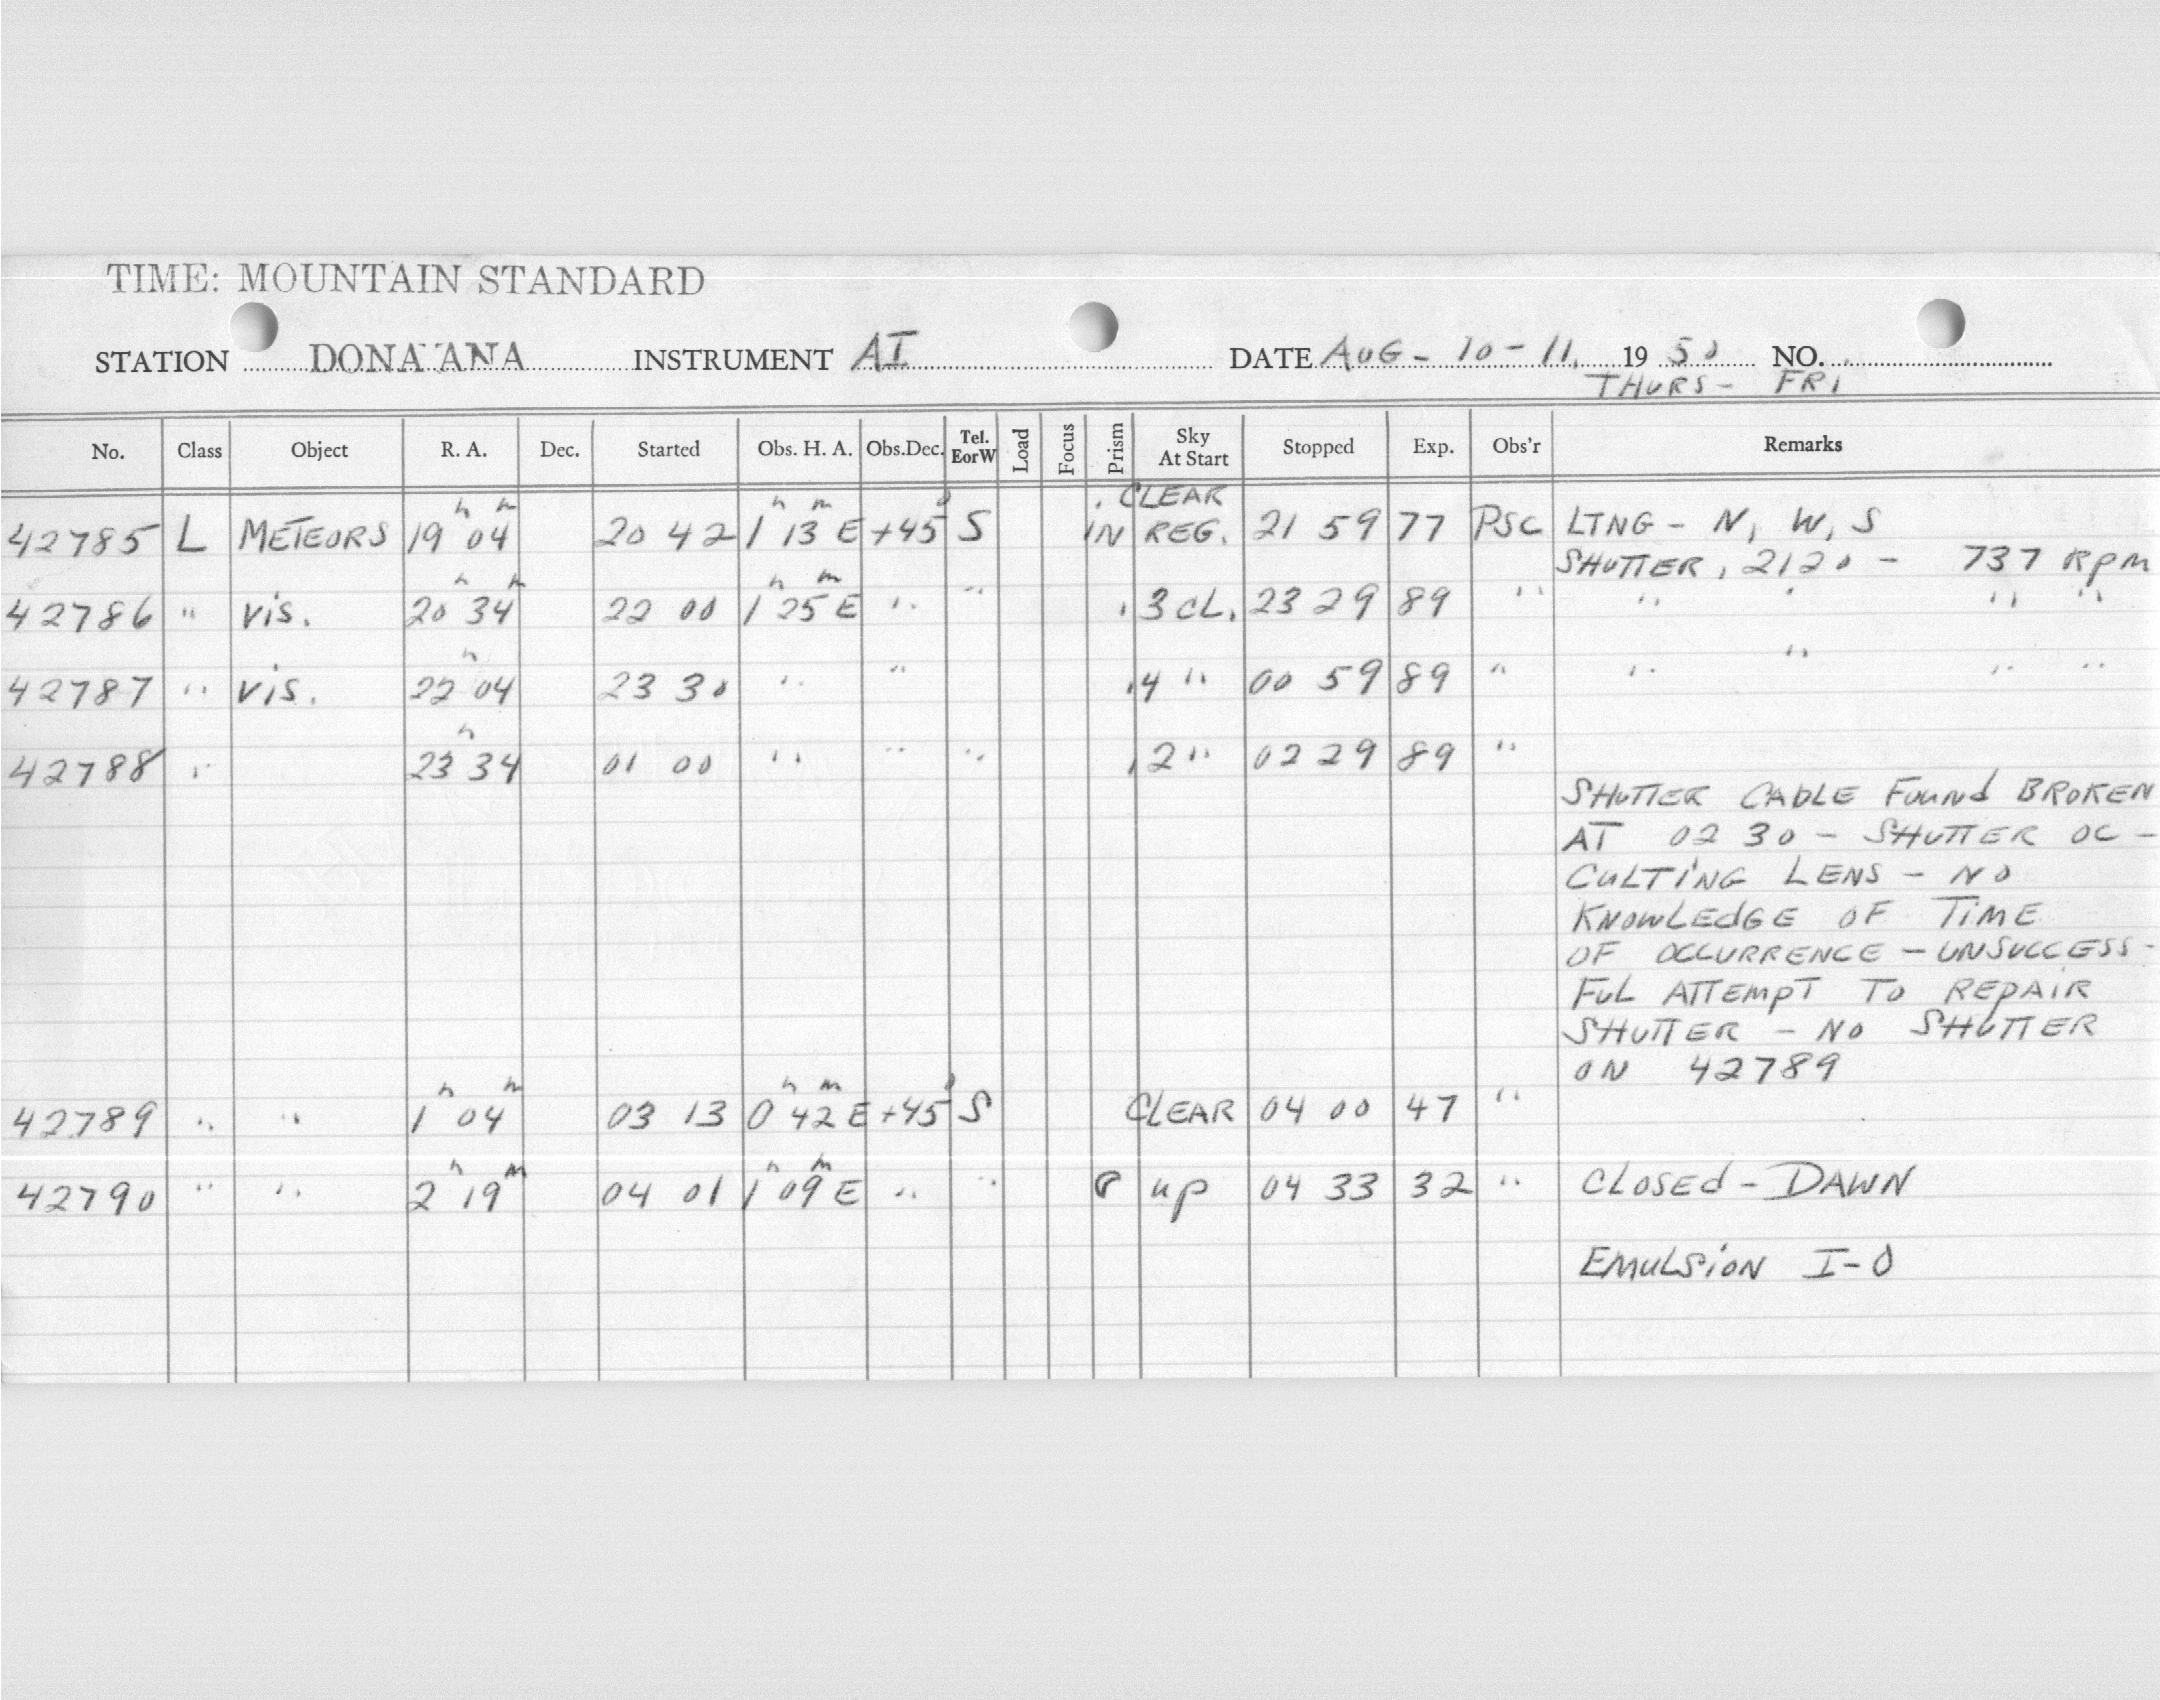 TIME: MOUNTAIN STANDARD
STATION DONA ANA INSTRUMENT AI DATE AUG - 10 - 11, 19 50 NO.
THURS - FRI
No. Class Object R. A. Dec. Started Obs. H. A. Obs.Dec. Tel. EorW Load Focus Prism Sky At Start Stopped Exp. Obs'r Remarks
42785 L METEORS 19h 04m 20 42 1h 13m E +45° S CLEAR IN REG. 21 59 77 PSC LTNG - N, W, S
SHUTTER, 2120 - 737 RPM
42786 " vis. 20h 34m 22 00 1h 25m E " " .3 CL. 23 29 89 " " " " "
42787 " vis. 22h 04 23 30 " " .4 " 00 59 89 " " " " "
42788 " 23h 34 01 00 " " " .2 " 02 29 89 "
SHUTTER CABLE FOUNd BROKEN
AT 02 30 - SHUTTER OC -
CULTING LENS - NO
KNOWLEdGE OF TIME
OF OCCURRENCE - UNSUCCESS -
FUL ATTEMPT TO REPAIR
SHUTTER - NO SHUTTER
ON 42789
42789 " " 1h 04m 03 13 0h 42m E +45° S CLEAR 04 00 47 "
42790 " " 2h 19m 04 01 1h 09m E " " up 04 33 32 " CLOSEd - DAWN
EMULSION I-O